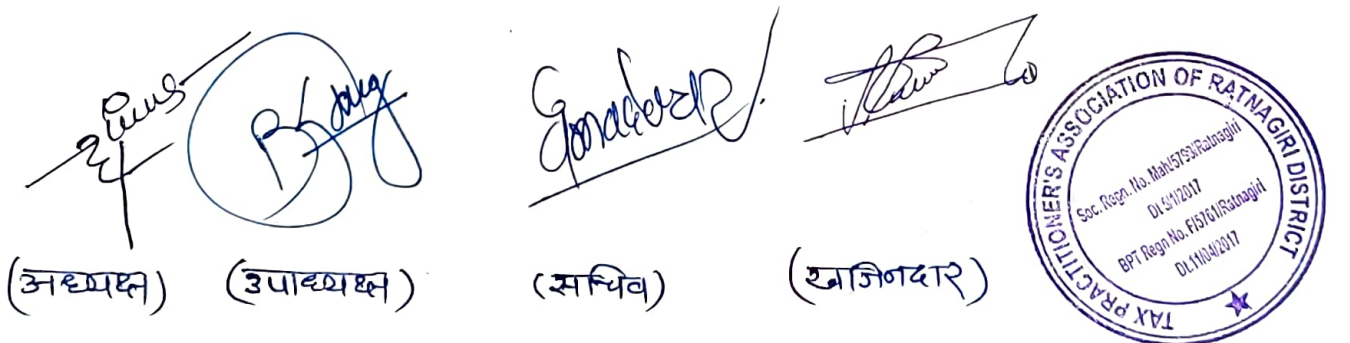 (अध्यक्ष) (उपाध्यक्ष) (सचिव) (खजिनदार)
TAX PRACTITIONER'S ASSOCIATION OF RATNAGIRI DISTRICT
Soc. Regn. No. Mah/5793/Ratnagiri
Dt.5/1/2017
BPT Regn No. F/5761/Ratnagiri
Dt.11/04/2017